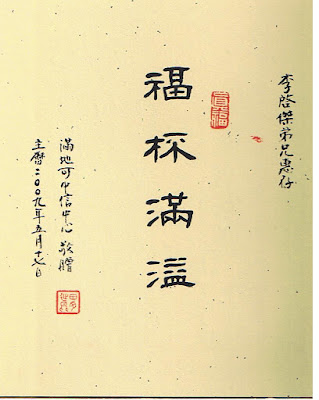 李啓傑弟兄惠存
福杯滿溢
滿地可中信中心 敬贈
主曆二〇〇九年五月十七日